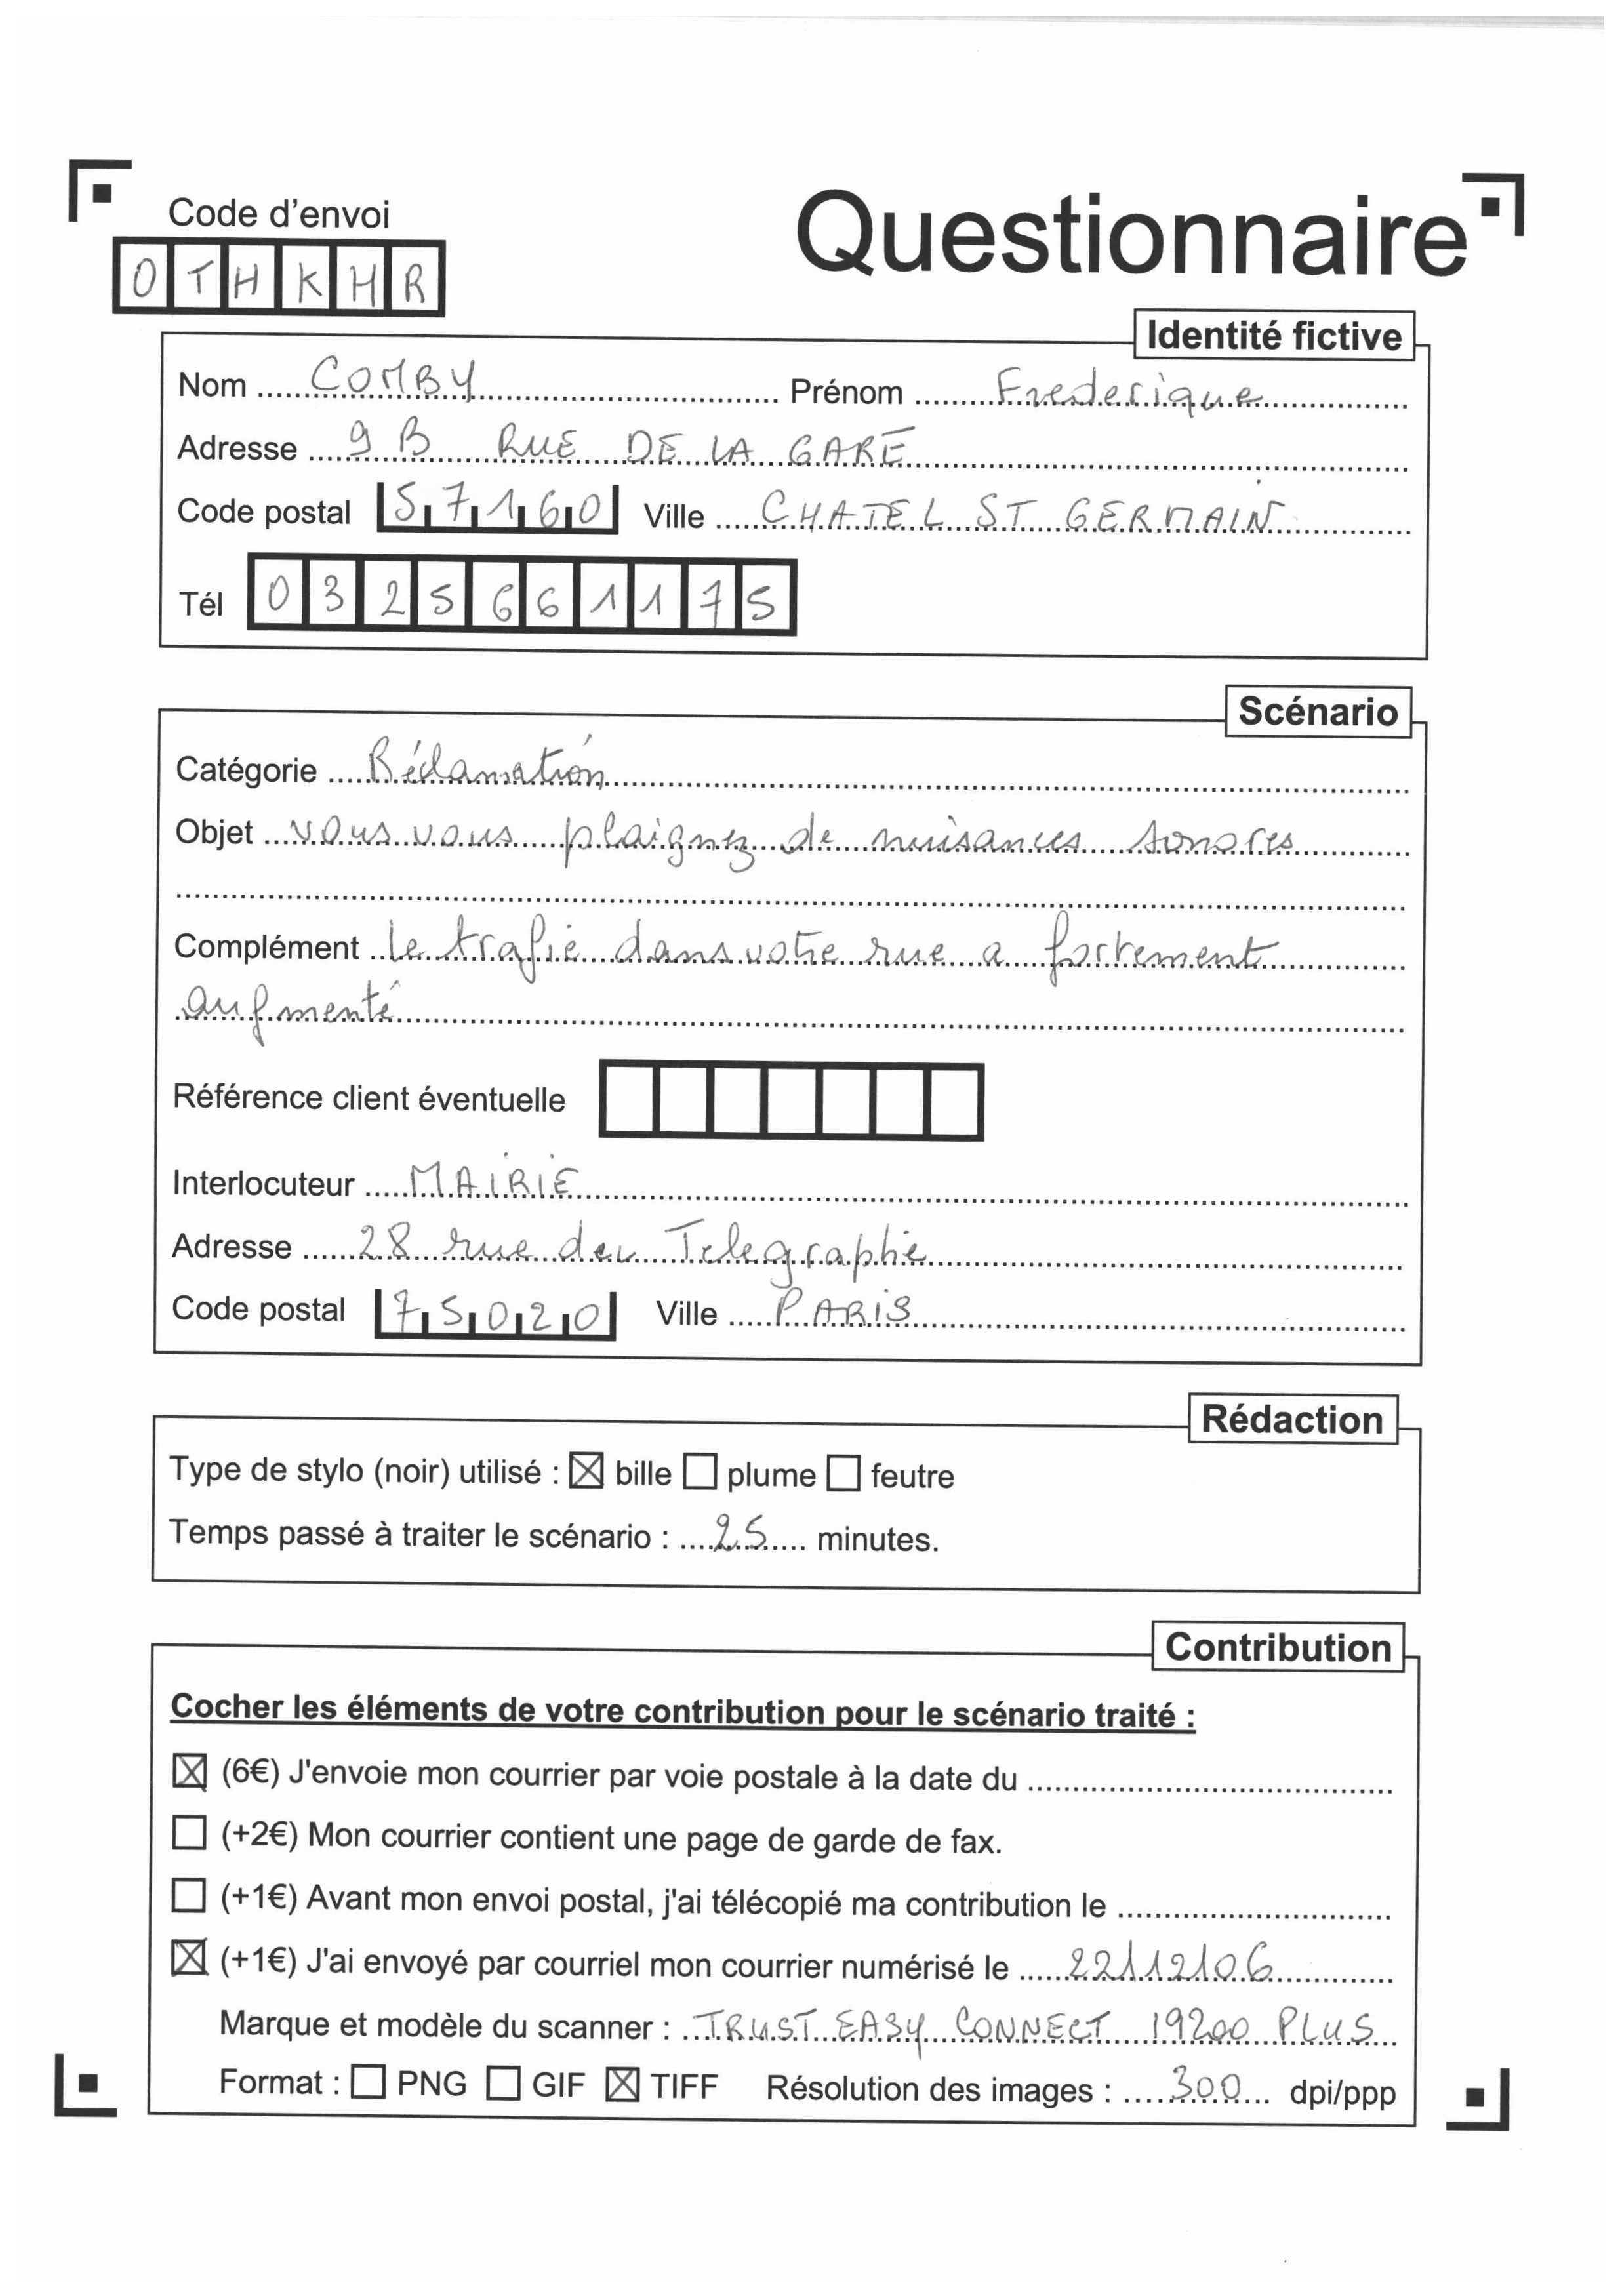 Code d'envoi
Questionnaire
OTHKHR
Identité fictive
Nom COMBY Prénom Frederique
Adresse 9 B RUE DE LA GARE
Code postal 57160 Ville CHATEL ST GERMAIN
Tél 0325661175
Scénario
Catégorie Réclamation
Objet vous vous plaignez de nuisances sonores
Complément le trafic dans votre rue a fortement
augmenté
Référence client éventuelle
Interlocuteur MAIRIE
Adresse 28 rue du Telegraphe
Code postal 75020 Ville PARIS
Rédaction
Type de stylo (noir) utilisé : ☒ bille ☐ plume ☐ feutre
Temps passé à traiter le scénario : 25 minutes.
Contribution
Cocher les éléments de votre contribution pour le scénario traité :
☒ (6€) J'envoie mon courrier par voie postale à la date du
☐ (+2€) Mon courrier contient une page de garde de fax.
☐ (+1€) Avant mon envoi postal, j'ai télécopié ma contribution le
☒ (+1€) J'ai envoyé par courriel mon courrier numérisé le 22/12/06
Marque et modèle du scanner : TRUST EASY CONNECT 19200 PLUS
Format : ☐ PNG ☐ GIF ☒ TIFF Résolution des images : 300 dpi/ppp